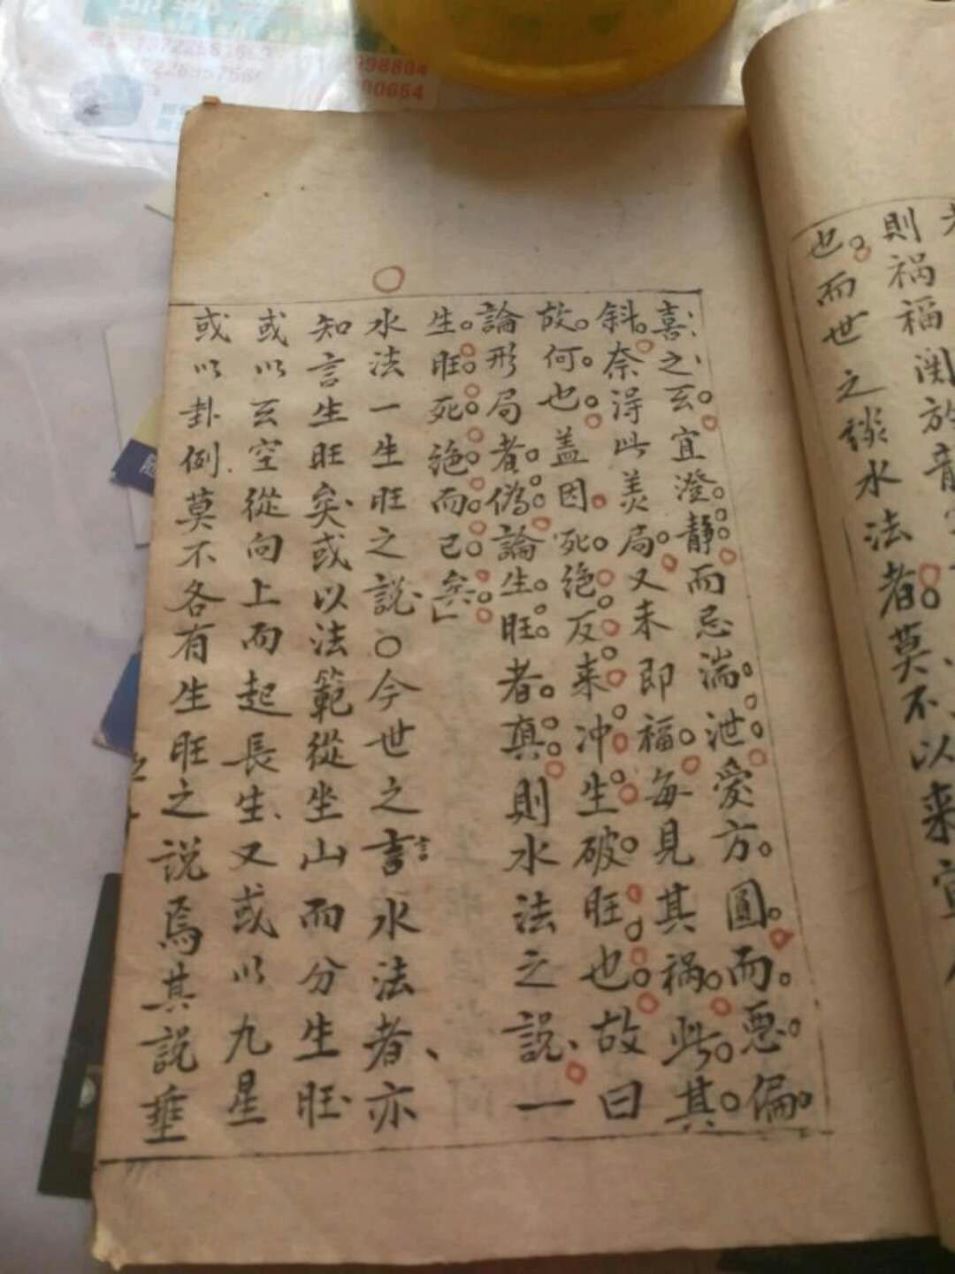 則禍福関於龍
也而世之談水法者莫不以来
喜之玄宜澄静而忌湍泄愛方圓而惡偏
斜奈淂此美局又未即福每見其禍此其
故何也盖因死绝反来冲生破旺也故曰
論形局者偽論生旺者真則水法之説一
生旺死绝而已矣
水法一生旺之説○今世之言水法者亦
知言生旺矣或以法範從坐山而分生旺
或以玄空從向上而起長生又或以九星
或以卦例莫不各有生旺之説焉其説垂